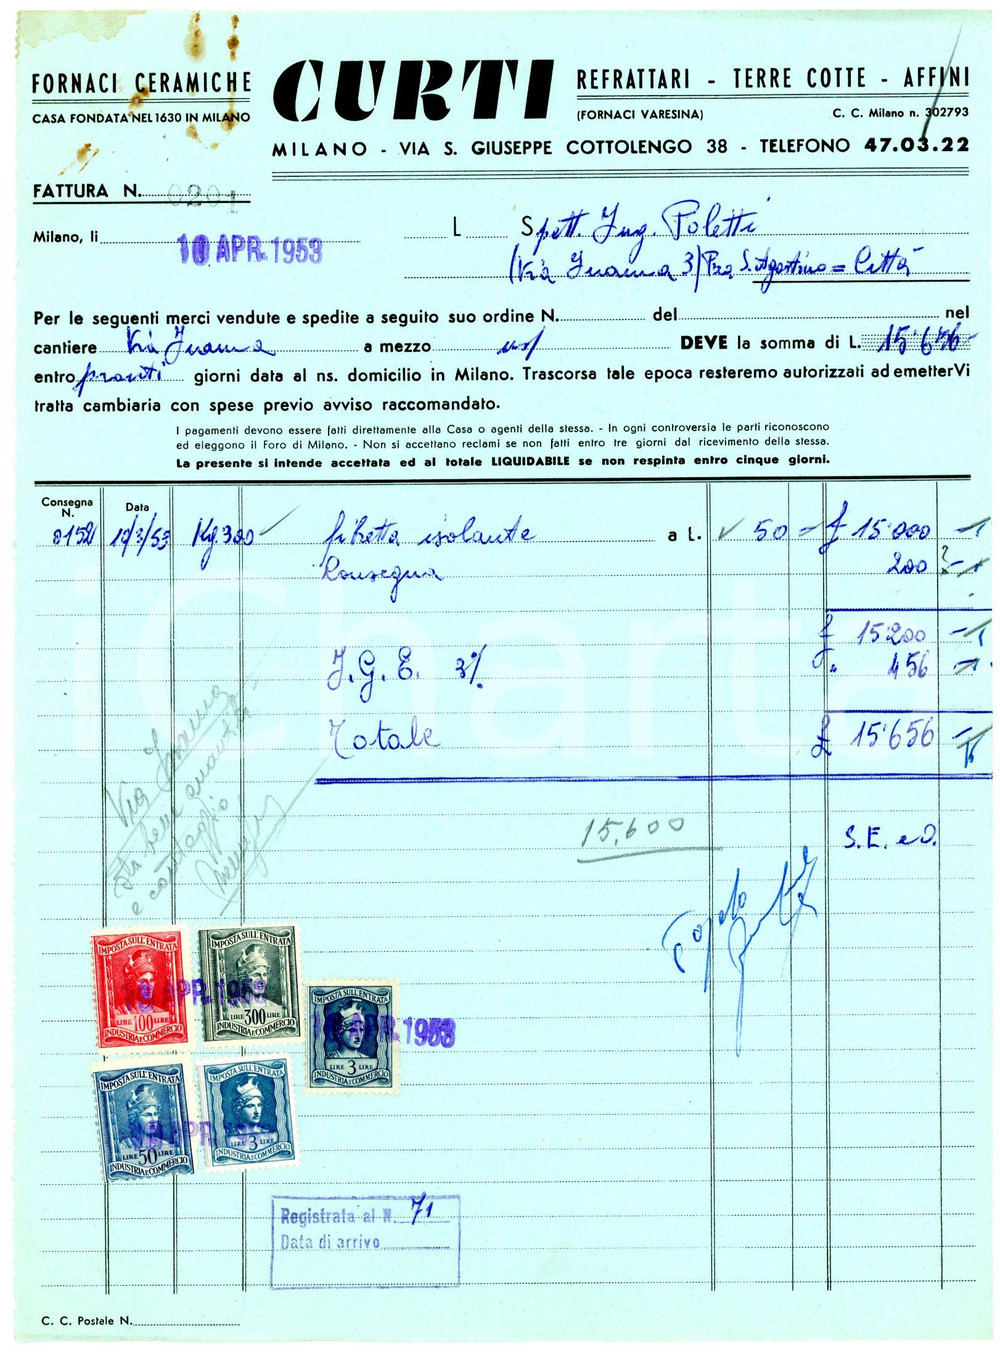 FORNACI CERAMICHE
CASA FONDATA NEL 1630 IN MILANO
CURTI
REFRATTARI - TERRE COTTE - AFFINI
(FORNACI VARESINA)
C. C. Milano n. 302793
MILANO - VIA S. GIUSEPPE COTTOLENGO 38 - TELEFONO 47.03.22
FATTURA N. 0201
Milano, li 10 APR. 1953
L
Spett. Ing. Poletti
(Via Juama 3) Pza S. Agostino = Città
Per le seguenti merci vendute e spedite a seguito suo ordine N. del nel
cantiere Via Juama a mezzo DEVE la somma di L. 15'656
entro pronti giorni data al ns. domicilio in Milano. Trascorsa tale epoca resteremo autorizzati ad emetterVi
tratta cambiaria con spese previo avviso raccomandato.
I pagamenti devono essere fatti direttamente alla Casa o agenti della stessa. - In ogni controversia le parti riconoscono
ed eleggono il Foro di Milano. - Non si accettano reclami se non fatti entro tre giorni dal ricevimento della stessa.
La presente si intende accettata ed al totale LIQUIDABILE se non respinta entro cinque giorni.
Consegna N.
Data
0152 12/3/53 Kg. 300 isolante a L. 50 = £ 15'000
Consegna 200
£ 15'200
I.G.E. 3% " 456
Totale £ 15'656
15.600
S.E. e O.
Via Juama
e conteggio
IMPOSTA SULL'ENTRATA
LIRE 100 LIRE
INDUSTRIA E COMMERCIO
IMPOSTA SULL'ENTRATA
LIRE 300 LIRE
INDUSTRIA E COMMERCIO
IMPOSTA SULL'ENTRATA
LIRE 3 LIRE
INDUSTRIA E COMMERCIO
APR. 1953
IMPOSTA SULL'ENTRATA
LIRE 50 LIRE
INDUSTRIA E COMMERCIO
IMPOSTA SULL'ENTRATA
LIRE 3 LIRE
INDUSTRIA E COMMERCIO
Registrata al N. 71
Data di arrivo
C. C. Postale N.
iCharta